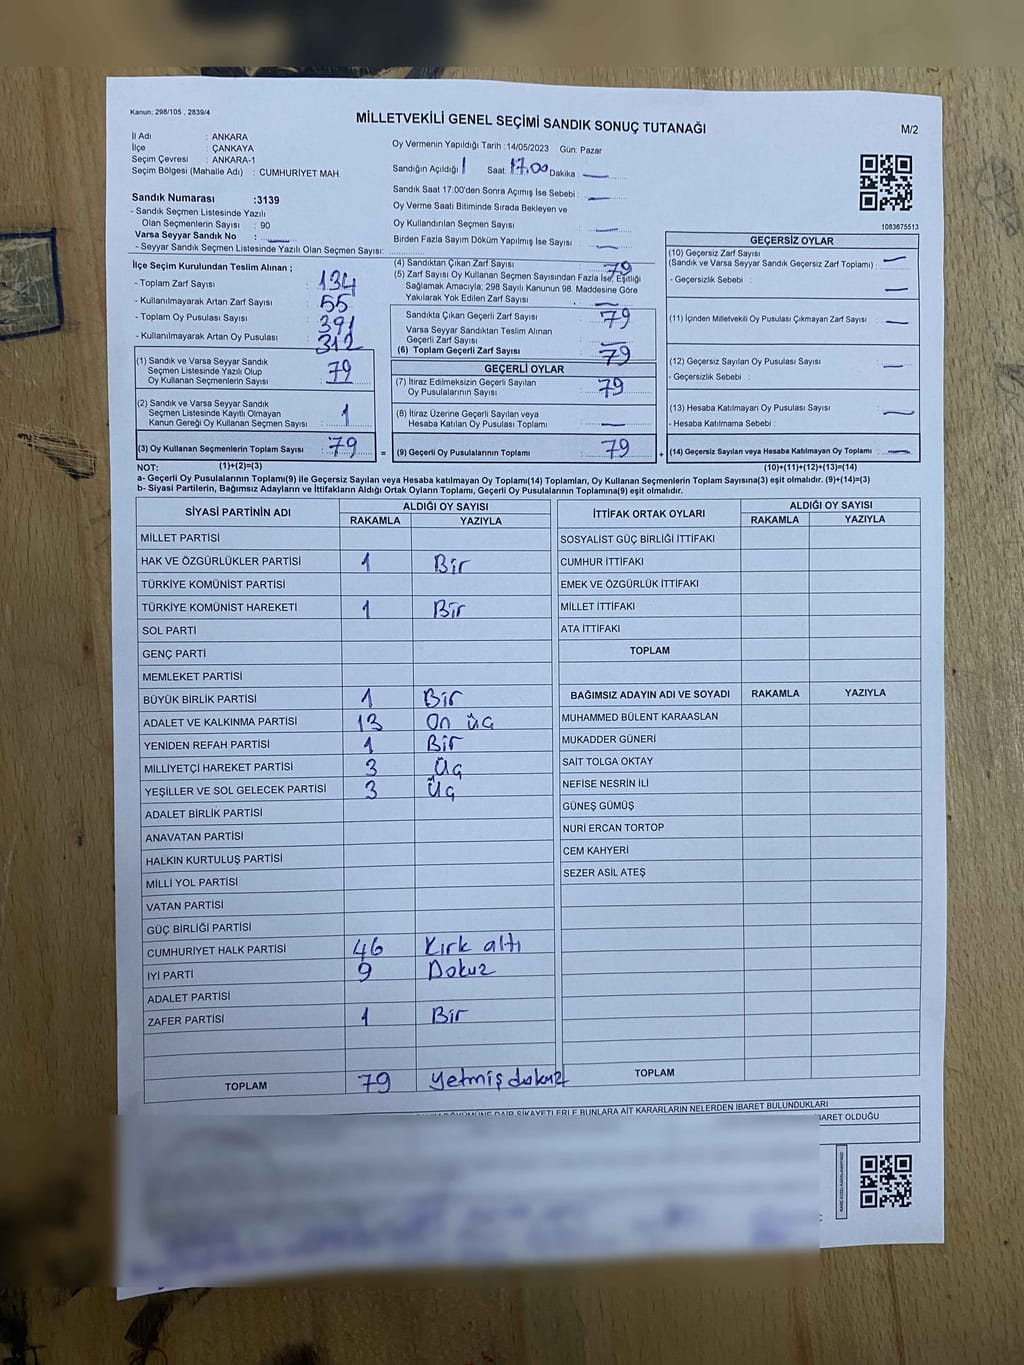 Kanun; 298/105 , 2839/4
MİLLETVEKİLİ GENEL SEÇİMİ SANDIK SONUÇ TUTANAĞI
M/2
İl Adı : ANKARA
İlçe : ÇANKAYA
Seçim Çevresi : ANKARA-1
Seçim Bölgesi (Mahalle Adı) : CUMHURİYET MAH.
Sandık Numarası :3139
- Sandık Seçmen Listesinde Yazılı
Olan Seçmenlerin Sayısı : 90
Varsa Seyyar Sandık No :
- Seyyar Sandık Seçmen Listesinde Yazılı Olan Seçmen Sayısı:
Oy Vermenin Yapıldığı Tarih :14/05/2023 Gün: Pazar
Sandığın Açıldığı Saat 17.00 Dakika :
Sandık Saat 17:00'den Sonra Açımış İse Sebebi :
Oy Verme Saati Bitiminde Sırada Bekleyen ve
Oy Kullandırılan Seçmen Sayısı :
Birden Fazla Sayım Döküm Yapılmış İse Sayısı :
1083675513
İlçe Seçim Kurulundan Teslim Alınan ;
- Toplam Zarf Sayısı : 134
- Kullanılmayarak Artan Zarf Sayısı : 55
- Toplam Oy Pusulası Sayısı : 391
- Kullanılmayarak Artan Oy Pusulası : 312
(1) Sandık ve Varsa Seyyar Sandık
Seçmen Listesinde Yazılı Olup
Oy Kullanan Seçmenlerin Sayısı : 79
(2) Sandık ve Varsa Seyyar Sandık
Seçmen Listesinde Kayıtlı Olmayan
Kanun Gereği Oy Kullanan Seçmen Sayısı : 1
(3) Oy Kullanan Seçmenlerin Toplam Sayısı : 79
(4) Sandıktan Çıkan Zarf Sayısı : 79
(5) Zarf Sayısı Oy Kullanan Seçmen Sayısından Fazla İse, Eşitliği
Sağlamak Amacıyla; 298 Sayılı Kanunun 98. Maddesine Göre
Yakılarak Yok Edilen Zarf Sayısı :
Sandıkta Çıkan Geçerli Zarf Sayısı : 79
Varsa Seyyar Sandıktan Teslim Alınan
Geçerli Zarf Sayısı :
(6) Toplam Geçerli Zarf Sayısı : 79
GEÇERLİ OYLAR
(7) İtiraz Edilmeksizin Geçerli Sayılan
Oy Pusulalarının Sayısı : 79
(8) İtiraz Üzerine Geçerli Sayılan veya
Hesaba Katılan Oy Pusulası Toplamı :
= (9) Geçerli Oy Pusulalarının Toplamı : 79 +
GEÇERSİZ OYLAR
(10) Geçersiz Zarf Sayısı
(Sandık ve Varsa Seyyar Sandık Geçersiz Zarf Toplamı) :
- Geçersizlik Sebebi :
(11) İçinden Milletvekili Oy Pusulası Çıkmayan Zarf Sayısı :
(12) Geçersiz Sayılan Oy Pusulası Sayısı :
- Geçersizlik Sebebi :
(13) Hesaba Katılmayan Oy Pusulası Sayısı :
- Hesaba Katılmama Sebebi :
(14) Geçersiz Sayılan veya Hesaba Katılmayan Oy Toplamı :
NOT: (1)+(2)=(3) (10)+(11)+(12)+(13)=(14)
a- Geçerli Oy Pusulalarının Toplamı(9) ile Geçersiz Sayılan veya Hesaba katılmayan Oy Toplamı(14) Toplamları, Oy Kullanan Seçmenlerin Toplam Sayısına(3) eşit olmalıdır. (9)+(14)=(3)
b- Siyasi Partilerin, Bağımsız Adayların ve İttifakların Aldığı Ortak Oyların Toplamı, Geçerli Oy Pusulalarının Toplamına(9) eşit olmalıdır.
SİYASİ PARTİNİN ADI ALDIĞI OY SAYISI
RAKAMLA YAZIYLA
MİLLET PARTİSİ
HAK VE ÖZGÜRLÜKLER PARTİSİ 1 Bir
TÜRKİYE KOMÜNİST PARTİSİ
TÜRKİYE KOMÜNİST HAREKETİ 1 Bir
SOL PARTİ
GENÇ PARTİ
MEMLEKET PARTİSİ
BÜYÜK BİRLİK PARTİSİ 1 Bir
ADALET VE KALKINMA PARTİSİ 13 On üç
YENİDEN REFAH PARTİSİ 1 Bir
MİLLİYETÇİ HAREKET PARTİSİ 3 Üç
YEŞİLLER VE SOL GELECEK PARTİSİ 3 Üç
ADALET BİRLİK PARTİSİ
ANAVATAN PARTİSİ
HALKIN KURTULUŞ PARTİSİ
MİLLİ YOL PARTİSİ
VATAN PARTİSİ
GÜÇ BİRLİĞİ PARTİSİ
CUMHURİYET HALK PARTİSİ 46 Kırk altı
İYİ PARTİ 9 Dokuz
ADALET PARTİSİ
ZAFER PARTİSİ 1 Bir
TOPLAM 79 Yetmiş dokuz
İTTİFAK ORTAK OYLARI ALDIĞI OY SAYISI
RAKAMLA YAZIYLA
SOSYALİST GÜÇ BİRLİĞİ İTTİFAKI
CUMHUR İTTİFAKI
EMEK VE ÖZGÜRLÜK İTTİFAKI
MİLLET İTTİFAKI
ATA İTTİFAKI
TOPLAM
BAĞIMSIZ ADAYIN ADI VE SOYADI RAKAMLA YAZIYLA
MUHAMMED BÜLENT KARAASLAN
MUKADDER GÜNERİ
SAİT TOLGA OKTAY
NEFİSE NESRİN İLİ
GÜNEŞ GÜMÜŞ
NURİ ERCAN TORTOP
CEM KAHYERİ
SEZER ASİL ATEŞ
TOPLAM
DÖKÜMÜNE DAİR ŞİKAYETLERLE BUNLARA AİT KARARLARIN NELERDEN İBARET BULUNDUKLARI
İBARET OLDUĞU